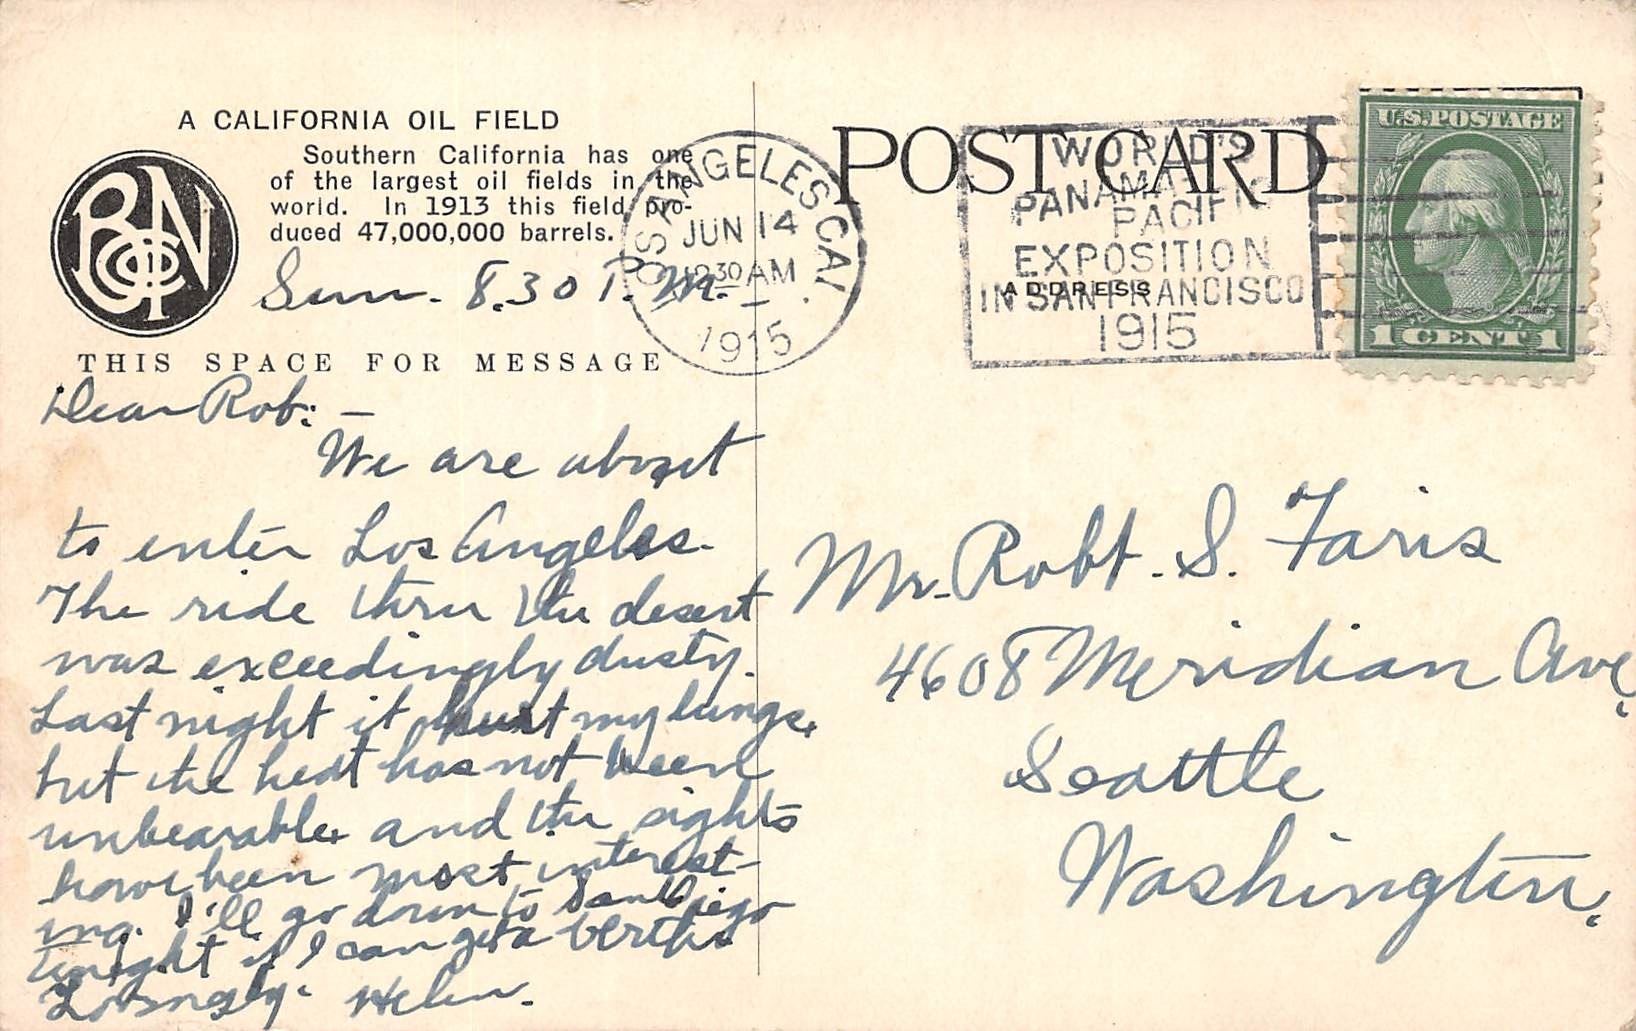 A CALIFORNIA OIL FIELD
Southern California has one
of the largest oil fields in the
world. In 1913 this field pro-
duced 47,000,000 barrels.
Sun. 8.30 P.M. -
THIS SPACE FOR MESSAGE
Dear Rob: -
We are about
to enter Los Angeles.
The ride thru the desert
was exceedingly dusty.
Last night it hurt my lungs,
but the heat has not been
unbearable, and the sights
have been most interest-
ing. I'll go down to San Diego
tonight if I can get a berth.
Lovingly - Helen.
LOS ANGELES CAL.
JUN 14
12 30 AM
1915
POST CARD
WORLD'S
PANAMA
PACIFIC
EXPOSITION
IN SAN FRANCISCO
1915
ADDRESS
U.S. POSTAGE
1 CENT 1
Mr. Robt. S. Faris
4608 Meridian Ave,
Seattle
Washington.